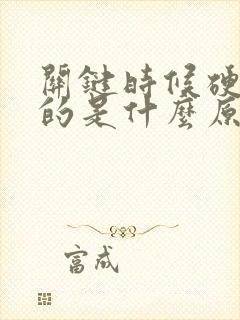 關鍵時候硬
的是什麼原
富成